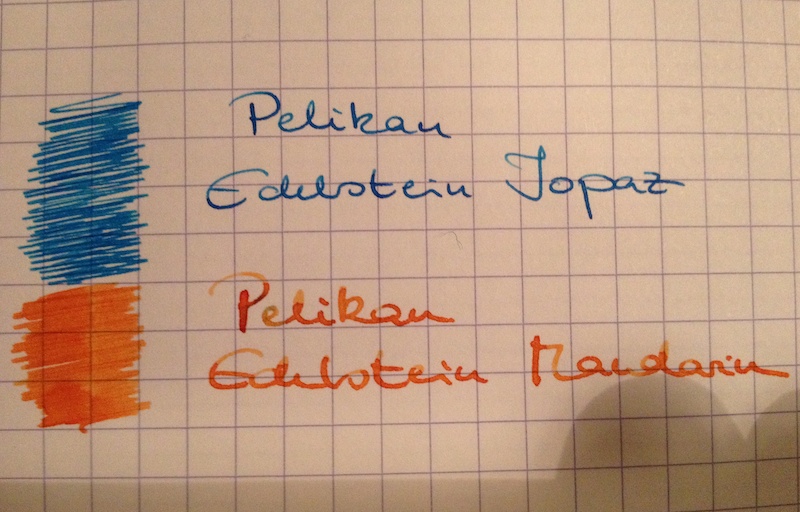 Pelikan
Edelstein Topaz
Pelikan
Edelstein Mandarin